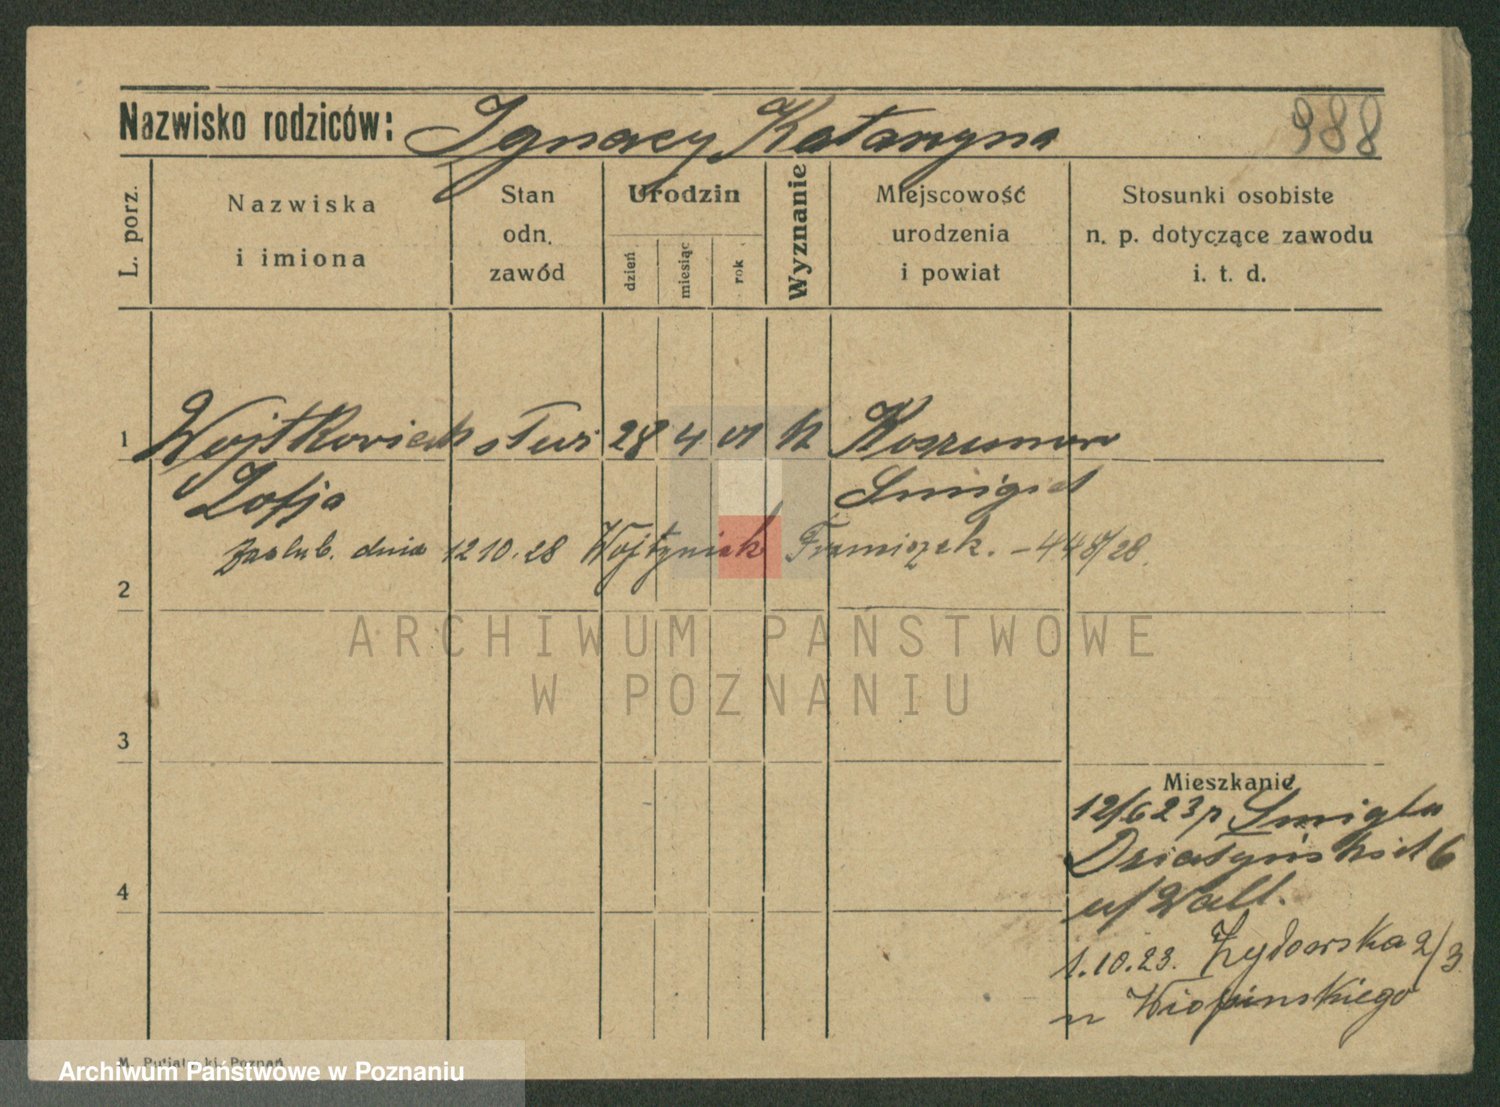 Nazwisko rodziców: Ignacy Katarzyna 988
L. porz.
Nazwiska
i imiona
Stan
odn.
zawód
Urodzin
dzień
miesiąc
rok
Wyznanie
Miejscowość
urodzenia
i powiat
Stosunki osobiste
n. p. dotyczące zawodu
i. t. d.
1 Wojtkowiak służ 28 4 01 k
Zofja Śmigiel
zaślub. dnia 12 10. 28 Wojtyniak Franciszek. - 448/28.
2
ARCHIWUM PAŃSTWOWE
W POZNANIU
3
Mieszkanie
12/6 23 p Śmigla
Działyńskich 6
4
u/ Wall.
1.10.23. Żydowska 2/3
u
M. Putiatycki, Poznań
Archiwum Państwowe w Poznaniu